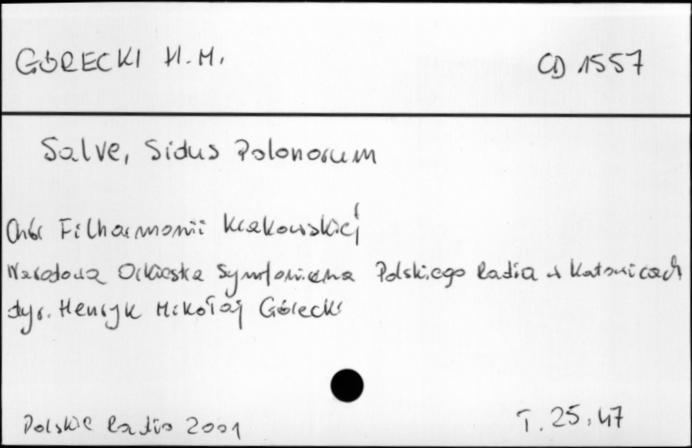 GÓRECKI H.M. CD 1557
Salve, Sidus Polonorum
Chór Filharmonii Krakowskiej
Narodowa Orkiestra Symfoniczna Polskiego Radia w Katowicach
dyr. Henryk Mikołaj Górecki
Polskie Radio 2001 T. 25,47